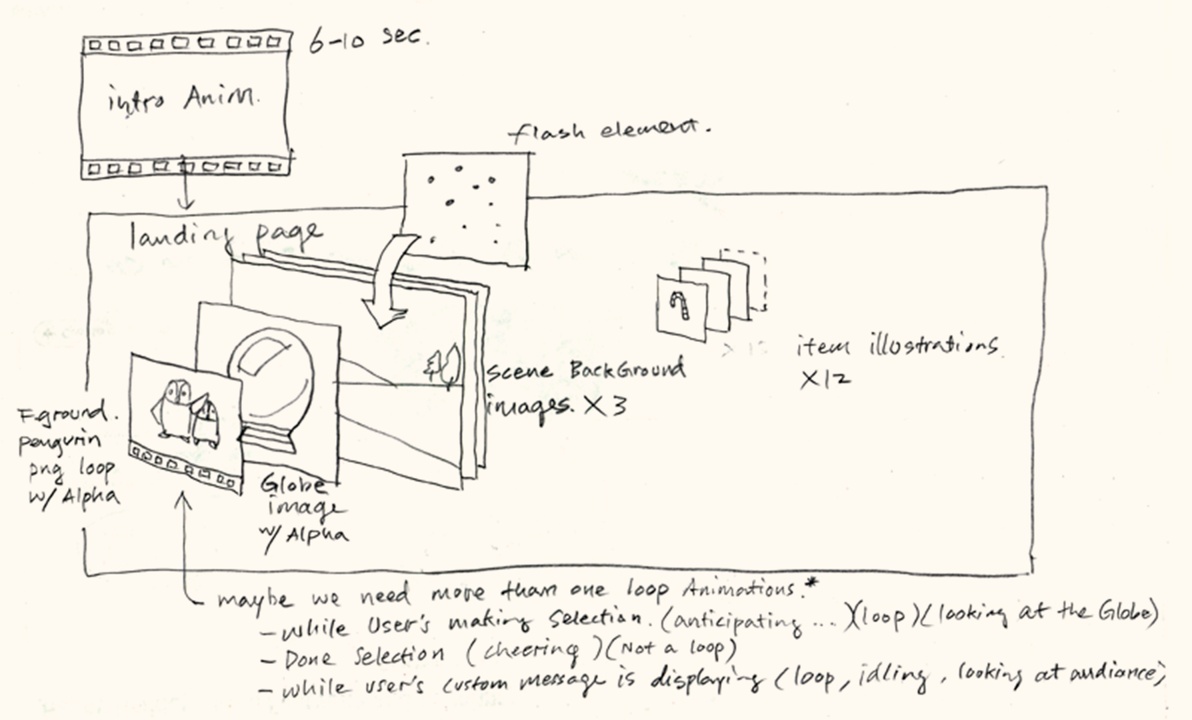 6-10 sec.
intro Anim.
flash element.
landing page
item illostrations.
X12
scene BackGround
images. X3
F.ground.
penguin
png loop
w/ Alpha
Globe
image
w/ Alpha
maybe we need more than one loop Animations.*
- while User's making Selection. (anticipating ... )(loop)(looking at the Globe)
- Done Selection (cheering)(Not a loop)
- while user's custom message is displaying (loop, idling, looking at audiance)